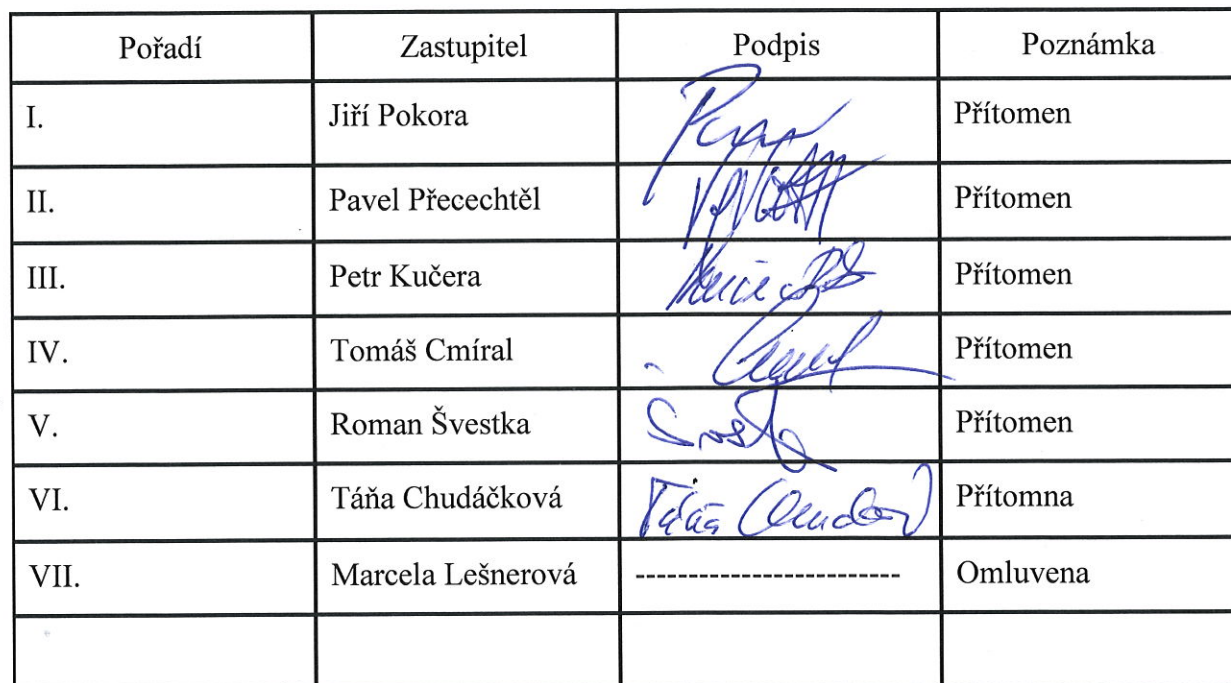 Pořadí Zastupitel Podpis Poznámka
I. Jiří Pokora Přítomen
II. Pavel Přecechtěl Přítomen
III. Petr Kučera Přítomen
IV. Tomáš Cmíral Přítomen
V. Roman Švestka Přítomen
VI. Táňa Chudáčková Táňa Přítomna
VII. Marcela Lešnerová ------------------------- Omluvena